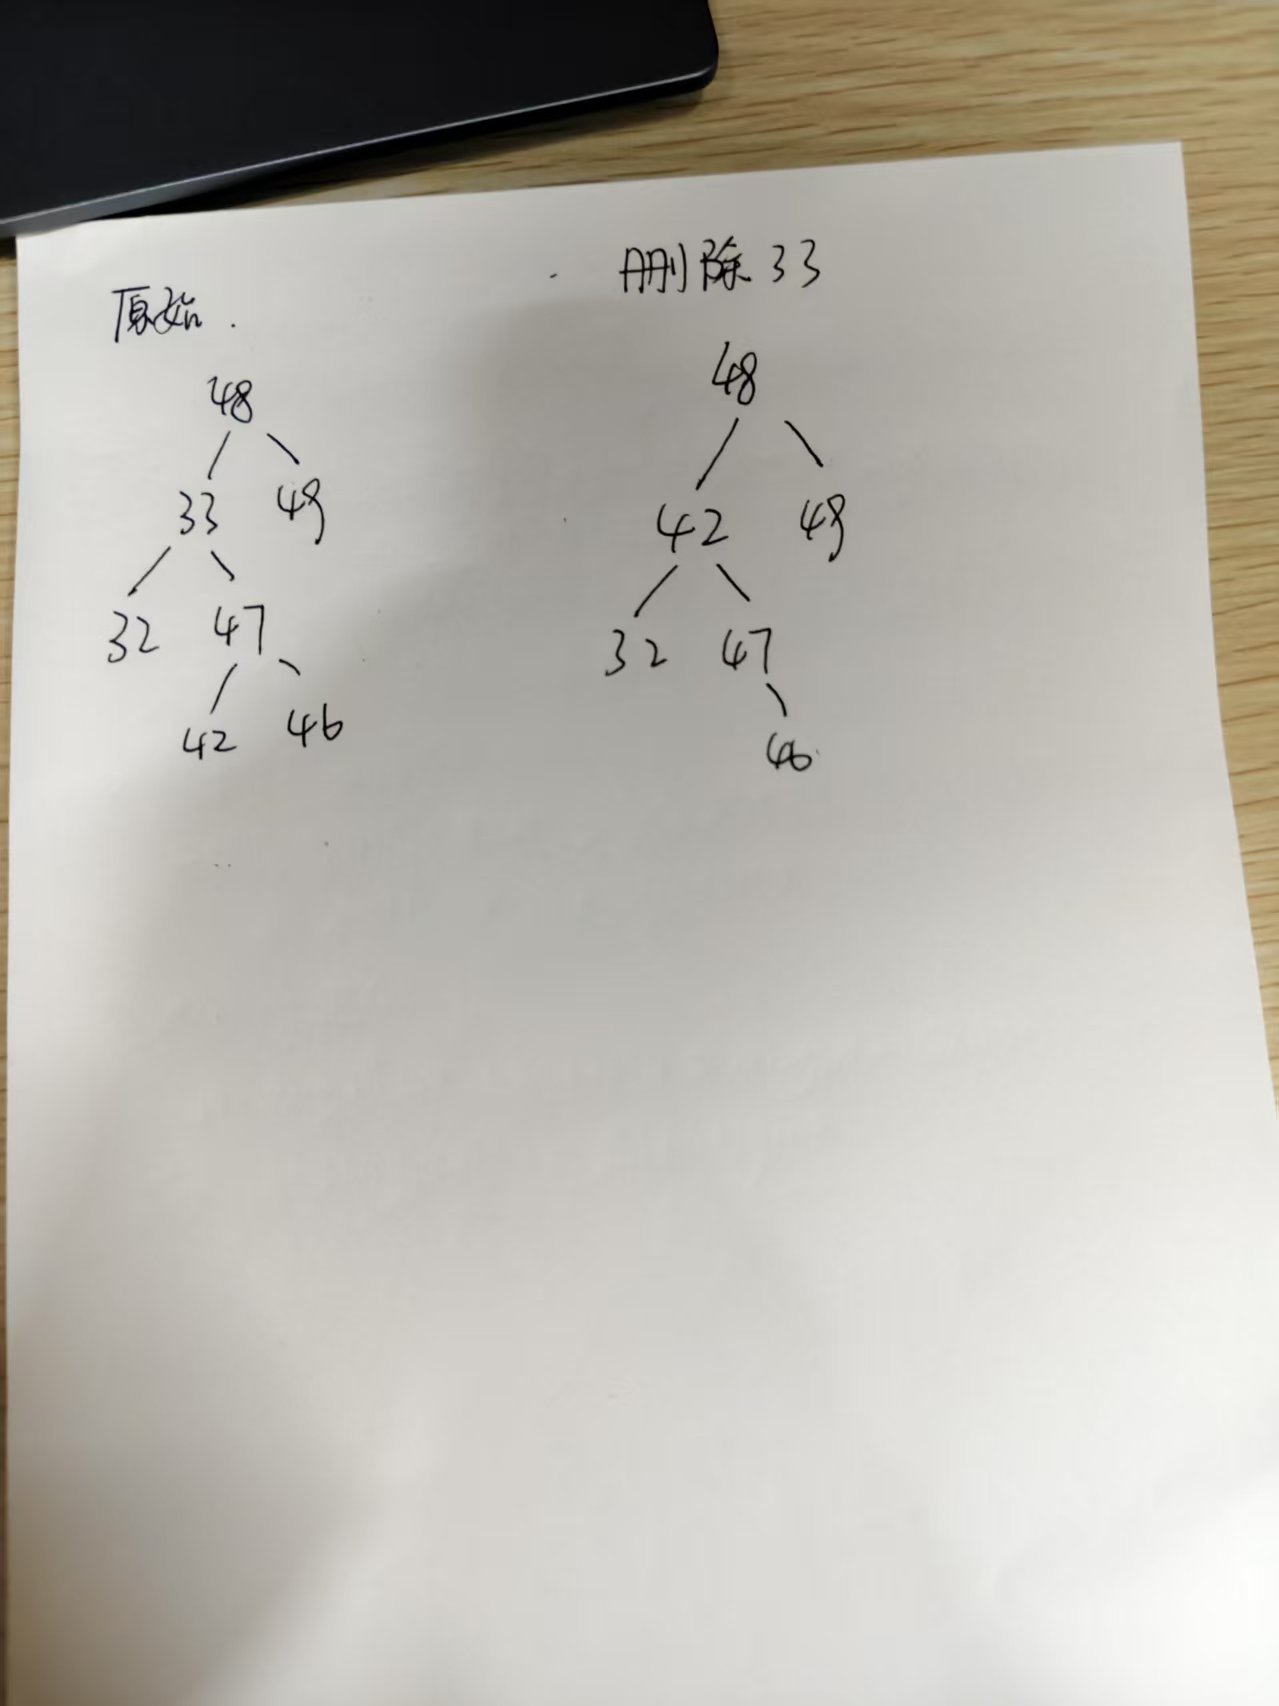 原始.
48
33 49
32 47
42 46
删除33
48
42 49
32 47
46